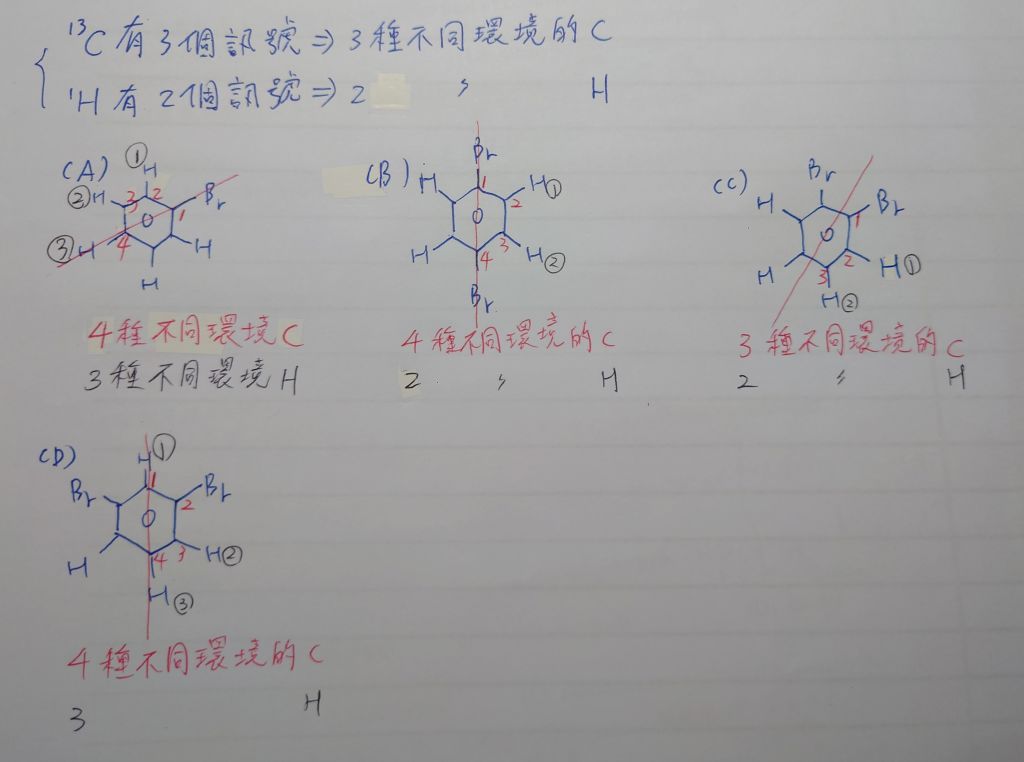 ¹³C 有 3 個訊號 ⇒ 3 種不同環境的 C
¹H 有 2 個訊號 ⇒ 2 〃 H
(A)
① H
② H 3 2 Br
1
③ H 4 H
H
4 種不同環境 C
3 種不同環境 H
(B)
Br
H 1 H ①
2
3
H 4 H ②
Br
4 種不同環境的 C
2 〃 H
(C)
Br
H Br
1
H 2 H ①
3
H ②
3 種不同環境的 C
2 〃 H
(D)
H ①
Br 1 Br
2
4 3 H ②
H
H ③
4 種不同環境的 C
3 H